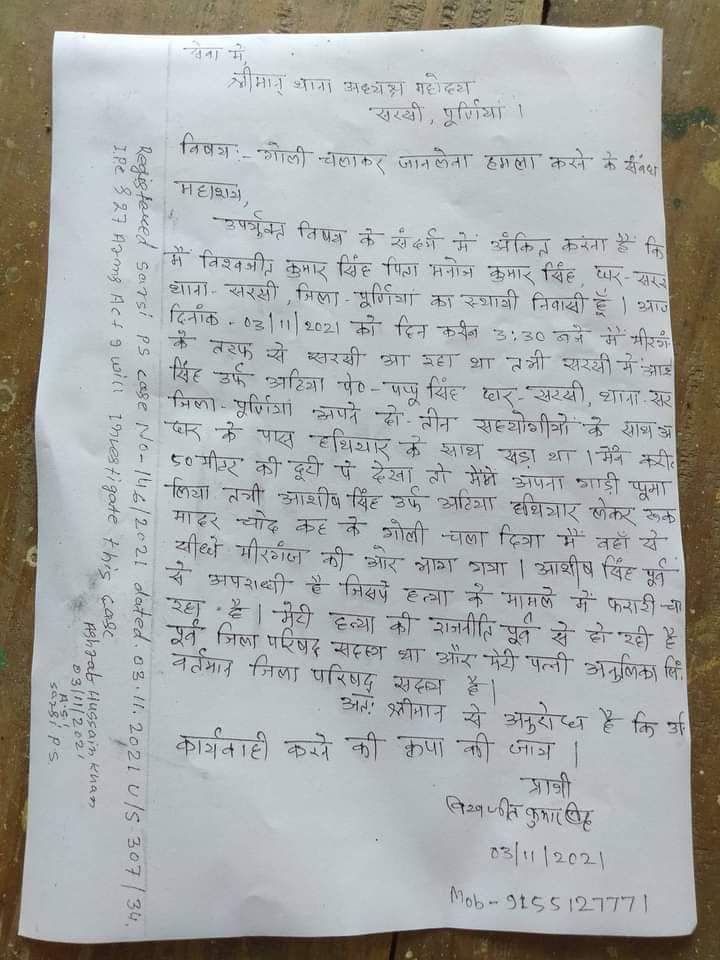 सेवा में,
श्रीमान् थाना अध्यक्ष महोदय
सरसी, पूर्णियां ।
विषय:- गोली चलाकर जानलेवा हमला करने के संबंध
महाशय,
उपर्युक्त विषय के संदर्भ में अंकित करना है कि
मैं विश्वजीत कुमार सिंह पिता मनोज कुमार सिंह, घर-सरसी
थाना-सरसी, जिला-पूर्णिया का स्थायी निवासी हूँ । आज
दिनांक-03/11/2021 को दिन करीब 3:30 बजे में मीरगं
के तरफ से सरसी आ रहा था तभी सरसी में आशी
सिंह उर्फ अटिया पे०-पप्पू सिंह घर-सरसी, थाना-सर
जिला-पूर्णियां अपने दो-तीन सहयोगीयों के साथ अ
घर के पास हथियार के साथ खड़ा था । मैंने करीब
50 मीटर की दूरी पे देखा तो मैंने अपना गाड़ी घुमा
लिया तभी आशीष सिंह उर्फ अटिया हथियार लेकर रूक
मादर चोद कह के गोली चला दिया मैं वहाँ से
सीधे मीरगंज की ओर भाग गया । आशीष सिंह पूर्व
से अपराधी है जिसपे हत्या के मामले में फरारी च
रहा है । मेरी हत्या की राजनीति पूर्व से हो रही है
पूर्व जिला परिषद सदस्य था और मेरी पत्नी अनुलिका सिं
वर्तमान जिला परिषद् सदस्य है ।
अतः श्रीमान से अनुरोध है कि उ
कार्यवाही करने की कृपा की जाय ।
प्रार्थी
विश्वजीत कुमार सिंह
03/11/2021
Mob-9155127771
Registered Sarsi PS case No-146/2021 dated.03.11.2021 U/S-307/34.
IPC & 27 Arms Act & I will investigate this case
Ashrab Hussain Khan
03/11/2021
A.S.I
Sarsi PS